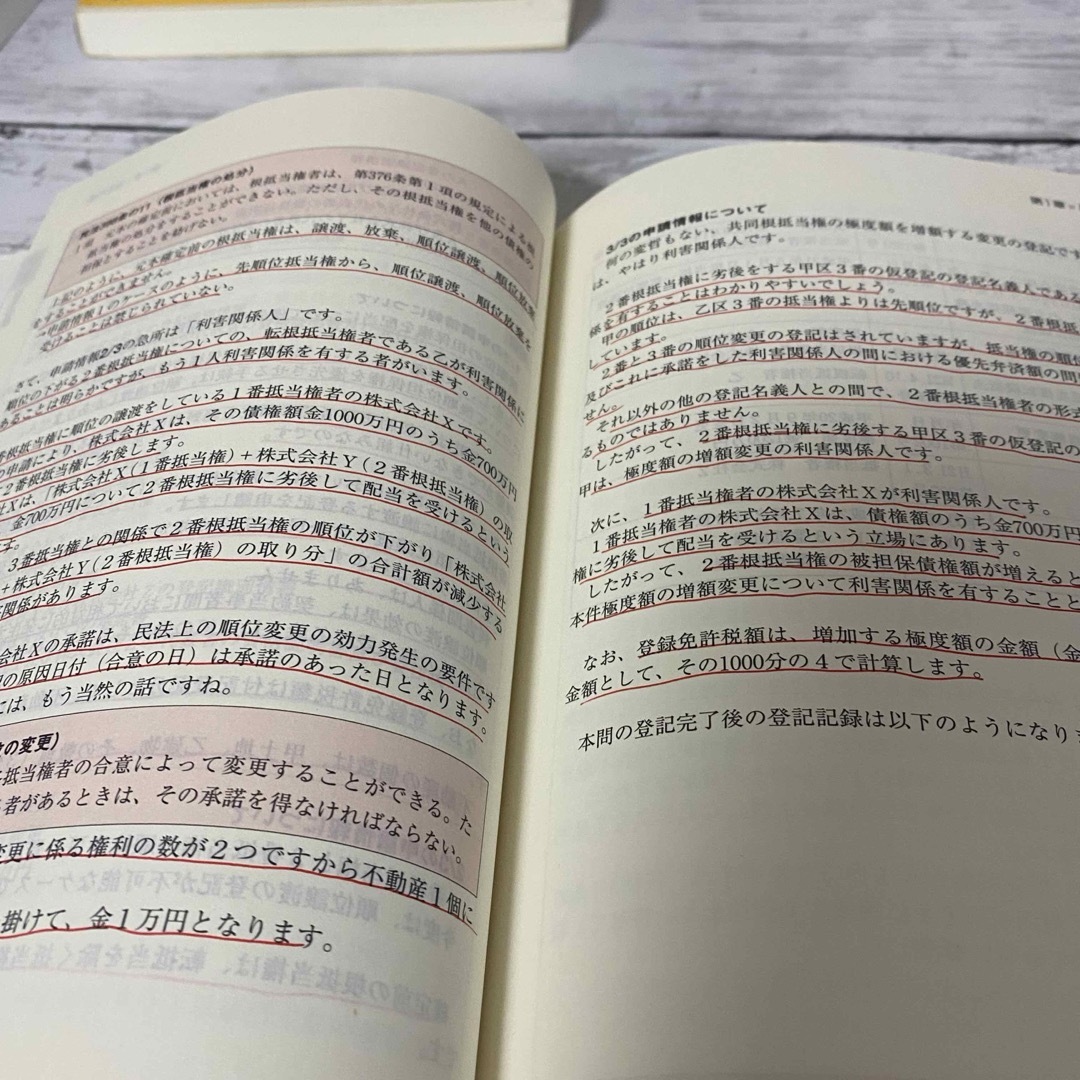 民法398条の11（根抵当権の処分）
根抵当権者は、第376条第1項の規定による根
ては、根抵当権を他の債権の
ことができない。ただし、その根抵当権を他の債権の
担保とすることを妨げない。
上記のように、元本確定前の根抵当権は、譲渡、放棄、順位譲渡、順位放棄
をすることができません。
申請情報1のケースのように、先順位抵当権から、順位譲渡、順位放棄を
受けることは禁じられていない。
さて、申請情報2/3の急所は「利害関係人」です。
順位の下がる2番根抵当権についての、転根抵当権者である乙が利害関係に
あることは明らかですが、もう1人利害関係を有する者がいます。
番根抵当に順位の譲渡をしている1番抵当権者の株式会社Xです。
の申請により、株式会社Xは、その債権額金1000万円のうち金700万円
2番根抵当権に劣後します。
社Xは、「株式会社X（1番抵当権）+株式会社Y（2番根抵当権）の取
金700万円について2番根抵当権に劣後して配当を受けるという
す。
3番抵当権との関係で2番根抵当権の順位が下がり「株式会社
+株式会社Y（2番根抵当権）の取り分」の合計額が減少する
害関係があります。
会社Xの承諾は、民法上の順位変更の効力発生の要件です
の原因日付（合意の日）は承諾のあった日となります。
には、もう当然の話ですね。
の変更）
抵当権者の合意によって変更することができる。た
者があるときは、その承諾を得なければならない。
変更に係る権利の数が2つですから不動産1個に
掛けて、金1万円となります。
第1章
3/3の申請情報について
何の変哲もない、共同根抵当権の極度額を増額する変更の登記です
は、やはり利害関係人です。
2番根抵当権に劣後をする甲区3番の仮登記の登記名義人である
係を有することはわかりやすいでしょう。
甲の順位は、乙区3番の抵当権よりは先順位ですが、2番根抵
しています。
2番と3番の順位変更の登記はされていますが、抵当権の順位
及びこれに承諾をした利害関係人の間における優先弁済額の問
せん。
それ以外の他の登記名義人との間で、2番根抵当権者の形式
るものではありません。
したがって、2番根抵当権に劣後する甲区3番の仮登記の
甲は、極度額の増額変更の利害関係人です。
次に、1番抵当権者の株式会社Xが利害関係人です。
1番抵当権者の株式会社Xは、債権額のうち金700万円
権に劣後して配当を受けるという立場にあります。
したがって、2番根抵当権の被担保債権額が増えると
本件極度額の増額変更について利害関係を有することと
なお、登録免許税額は、増加する極度額の金額（金
金額として、その1000分の4で計算します。
本問の登記完了後の登記記録は以下のようになりま